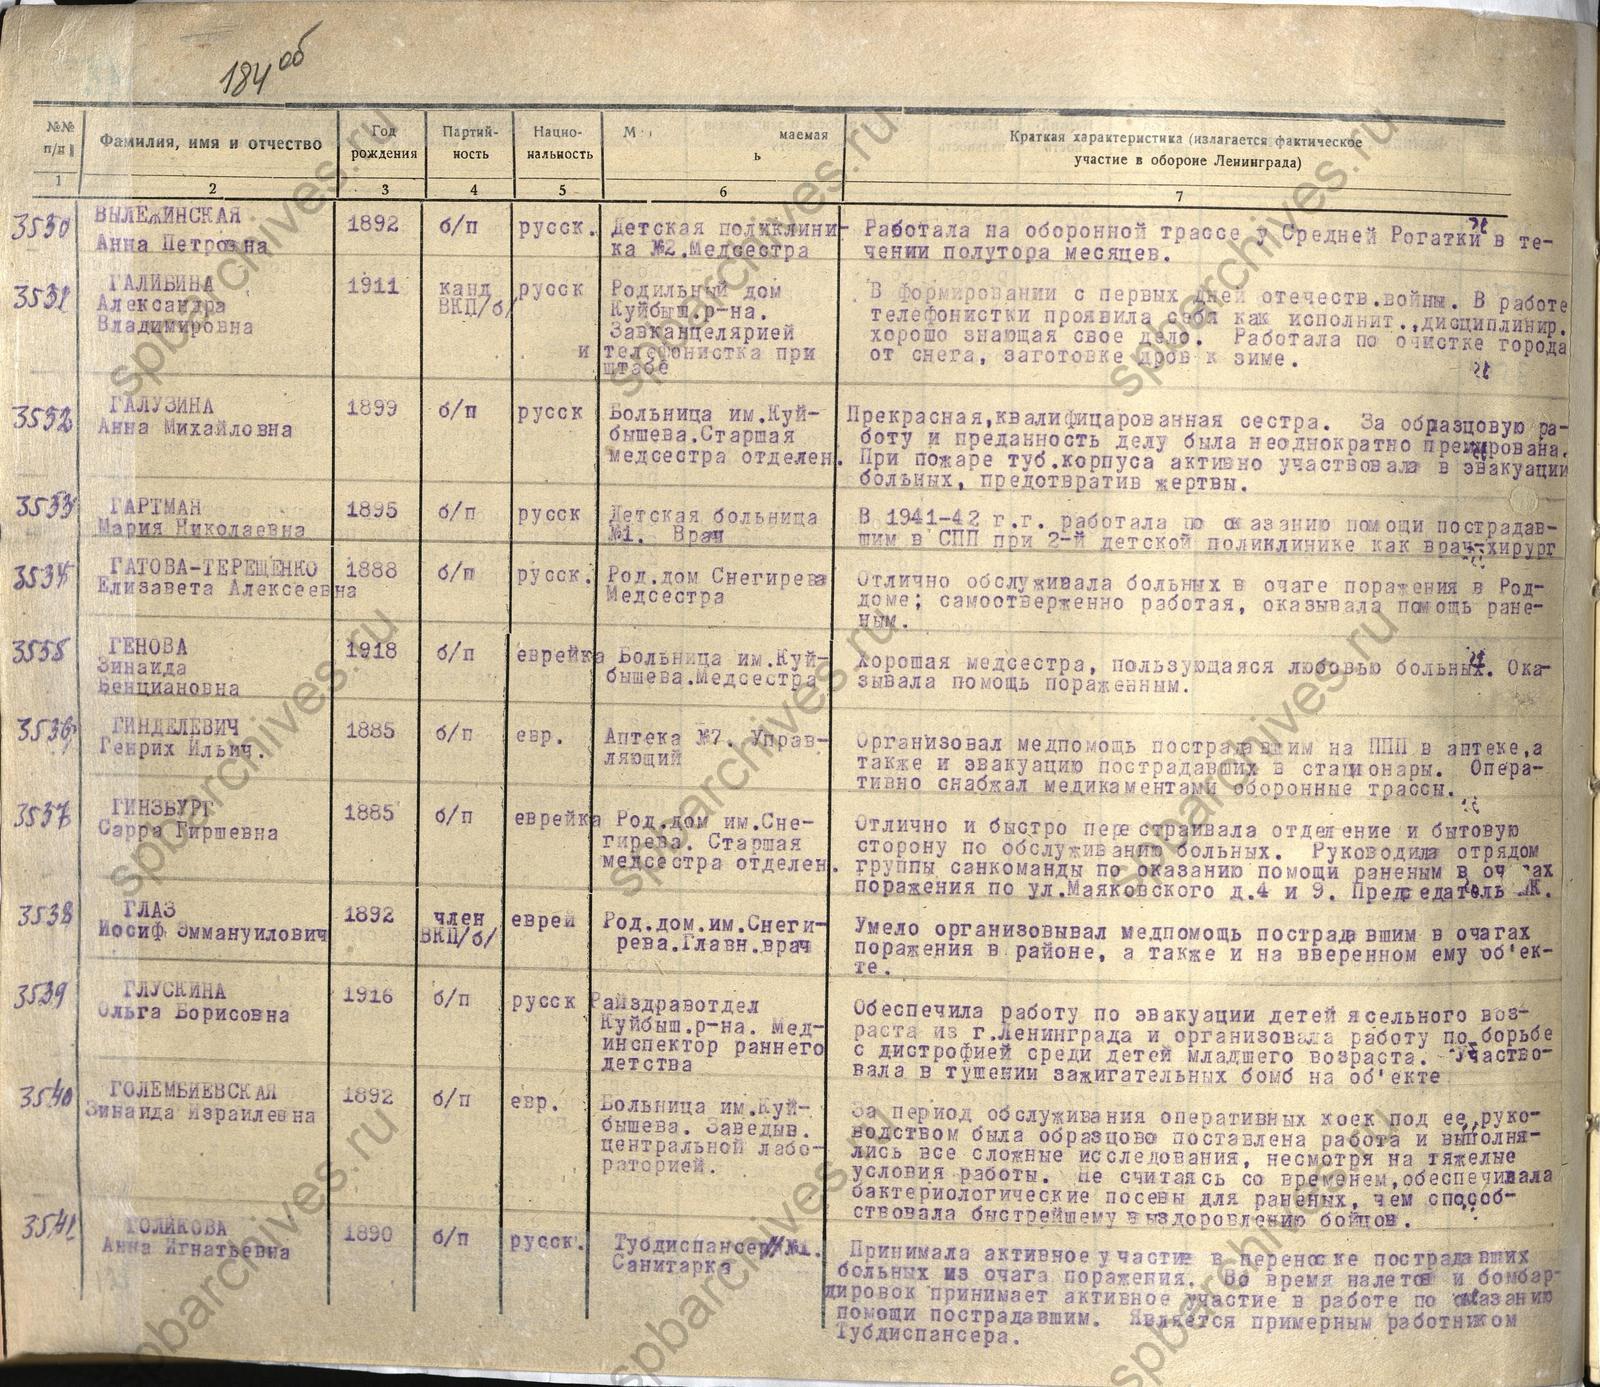 184 об
№№ п/п
Фамилия, имя и отчество
Год рождения
Партий-ность
Нацио-нальность
М маемая ь
Краткая характеристика (излагается фактическое участие в обороне Ленинграда)
1 2 3 4 5 6 7
3530 ВЫЛЕЖИНСКАЯ 1892 б/п русск. Детская поликлини- Работала на оборонной трассе у Средней Рогатки в те-
Анна Петровна ка №2.Медсестра чении полутора месяцев.
3531 ГАЛИБИНА 1911 канд русск Родильный дом В формировании с первых дней отечеств.войны. В работе
Александра ВКП/б/ Куйбыш.р-на. телефонистки проявила себя как исполнит.,дисциплинир.
Владимировна Завканцелярией хорошо знающая свое дело. Работала по очистке города
и телефонистка при от снега, заготовке дров к зиме.
штабе
3532 ГАЛУЗИНА 1899 б/п русск Больница им.Куй- Прекрасная,квалифицарованная сестра. За образцовую ра-
Анна Михайловна бышева.Старшая боту и преданность делу была неоднократно премирована.
медсестра отделен. При пожаре туб.корпуса активно участвовала в эвакуации
больных, предотвратив жертвы.
3533 ГАРТМАН 1895 б/п русск Детская больница В 1941-42 г.г. работала по оказанию помощи пострадав-
Мария Николаевна №1. Врач шим в СПП при 2-й детской поликлинике как врач-хирург
3534 ГАТОВА-ТЕРЕЩЕНКО 1888 б/п русск. Род.дом Снегирева Отлично обслуживала больных в очаге поражения в Род-
Елизавета Алексеевна Медсестра доме; самоотверженно работая, оказывала помощь ране-
ным.
3535 ГЕНОВА 1918 б/п еврейка Больница им.Куй- Хорошая медсестра, пользующаяся любовью больных. Ока-
Зинаида бышева.Медсестра зывала помощь пораженным.
Бенциановна
3536 ГИНДЕЛЕВИЧ 1885 б/п евр. Аптека №7. Управ- Организовал медпомощь пострадавшим на ППП в аптеке,а
Генрих Ильич. ляющий также и эвакуацию пострадавших в стационары. Опера-
тивно снабжал медикаментами оборонные трассы.
3537 ГИНЗБУРГ 1885 б/п еврейка Род.дом им.Сне- Отлично и быстро перестраивала отделение и бытовую
Сарра Гиршевна гирева. Старшая сторону по обслуживанию больных. Руководила отрядом
медсестра отделен. группы санкоманды по оказанию помощи раненым в очагах
поражения по ул.Маяковского д.4 и 9. Председатель МК.
3538 ГЛАЗ 1892 член еврей Род.дом.им.Снеги- Умело организовывал медпомощь пострадавшим в очагах
Иосиф Эммануилович ВКП/б/ рева.Главн.врач поражения в районе, а также и на вверенном ему об'ек-
те.
3539 ГЛУСКИНА 1916 б/п русск Райздравотдел Обеспечила работу по эвакуации детей ясельного воз-
Ольга Борисовна Куйбыш.р-на. Мед- раста из г.Ленинграда и организовала работу по борьбе
инспектор раннего с дистрофией среди детей младшего возраста. Участво-
детства вала в тушении зажигательных бомб на об'екте
3540 ГОЛЕМБИЕВСКАЯ 1892 б/п евр. Больница им.Куй- За период обслуживания оперативных коек под ее руко-
Зинаида Израилевна бышева. Заведыв. водством была образцово поставлена работа и выполня-
центральной лабо- лись все сложные исследования, несмотря на тяжелые
раторией. условия работы. Не считаясь со временем,обеспечивала
бактериологические посевы для раненых, чем способ-
ствовала быстрейшему выздоровлению бойцов.
3541 ГОЛИКОВА 1890 б/п русск. Тубдиспансер №1. Принимала активное участие в переноске пострадавших
Анна Игнатьевна Санитарка больных из очага поражения. Во время налетов и бомбар-
дировок принимает активное участие в работе по оказанию
помощи пострадавшим. Является примерным работником
Тубдиспансера.
spbarchives.ru